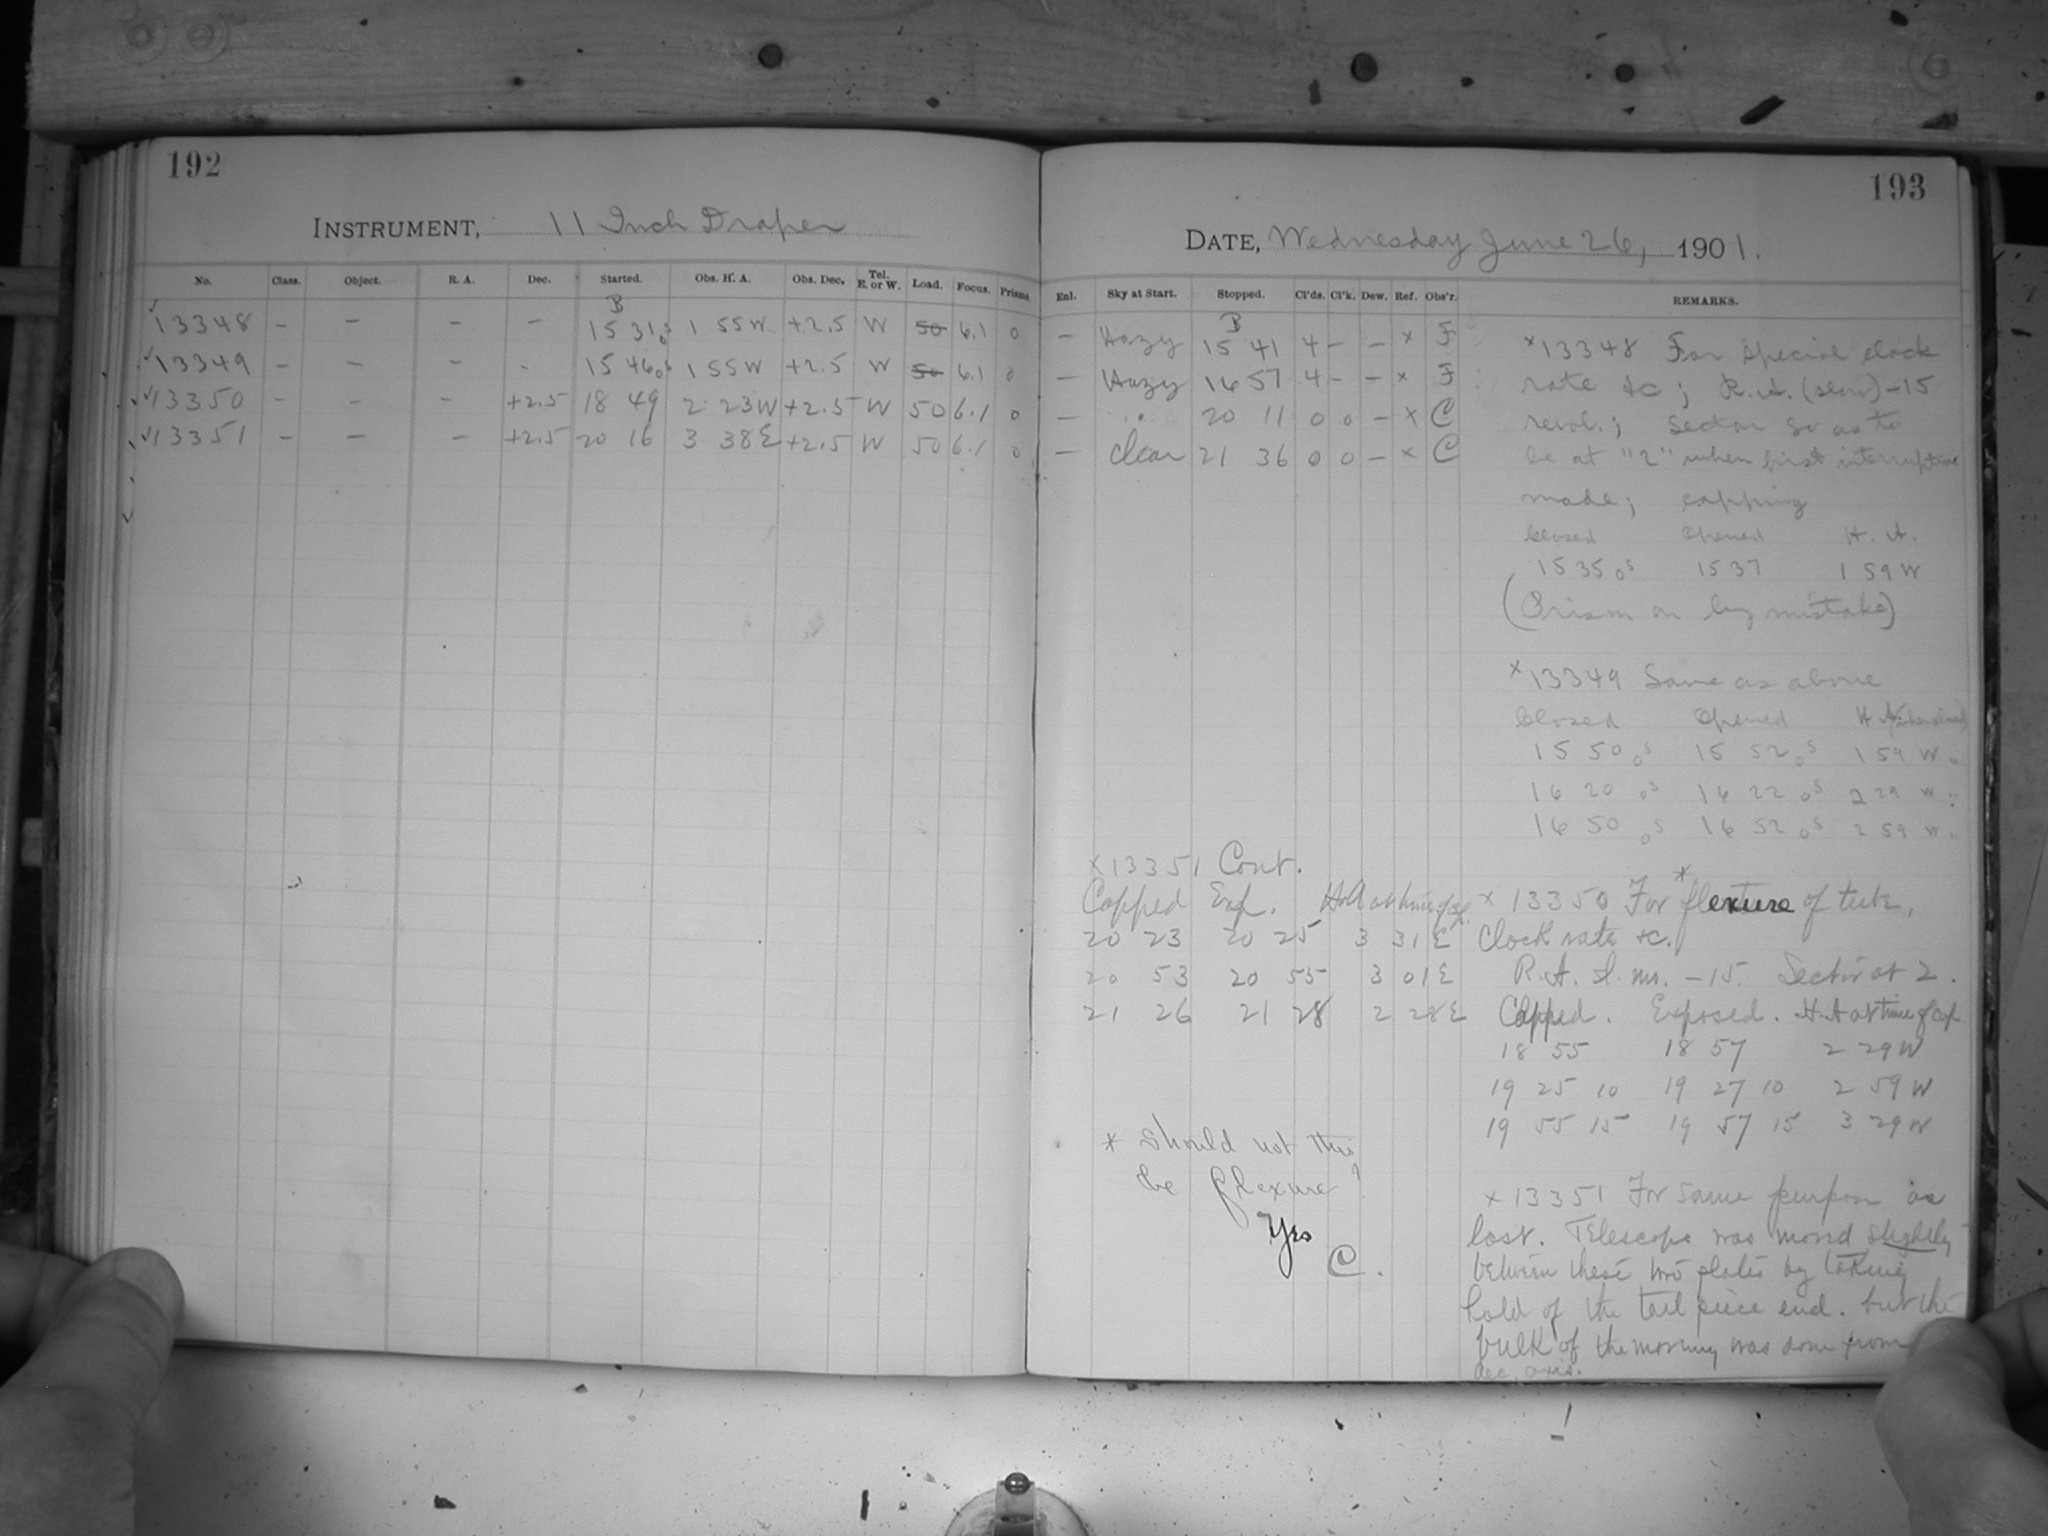 192
INSTRUMENT, 11 Inch Draper
No. Class. Object. R. A. Dec. Started. Obs. H. A. Obs. Dec. Tel. E. or W. Load. Focus. Prisms.
B
13348 - - - - 15 31 0s 1 55 W +2.5 W 50 6.1 0
13349 - - - - 15 46 0s 1 55 W +2.5 W 50 6.1 0
13350 - - - +2.5 18 49 2 23 W +2.5 W 50 6.1 0
13351 - - - +2.5 20 16 3 38 E +2.5 W 50 6.1 0
193
DATE, Wednesday June 26, 1901.
Enl. Sky at Start. Stopped. Cl'ds. Cl'k. Dew. Ref. Obs'r. REMARKS.
B
- Hazy 15 41 4 - - x F
- Hazy 16 57 4 - - x F
- " 20 11 0 0 - x C
- Clear 21 36 0 0 - x C
x 13348 For special clock
rate &c; R.A. (slow) -15
revol.; sector so as to
be at "2" when first interruption
made; capping
Closed Opened H. A.
15 35 0s 15 37 1 59 W
(Prism on by mistake)
x 13349 Same as above
Closed Opened H. A. when closed
15 50 0s 15 52 0s 1 59 W "
16 20 0s 16 22 0s 2 29 W "
16 50 0s 16 52 0s 2 59 W "
x 13350 For *flexture of tube,
Clock rate &c.
R.A. sl. m. -15. Sector at 2.
Capped. Exposed. H.A at time of cap.
18 55 18 57 2 29 W
19 25 10 19 27 10 2 59 W
19 55 15 19 57 15 3 29 W
x 13351 For same purpose as
last. Telescope was moved slightly
between these two plates by taking
hold of the tail piece end. but the
bulk of the moving was done from
dec. axis.
x 13351 Cont.
Capped Exp. H.A at time of cap.
20 23 20 25 3 31 E
20 53 20 55 3 01 E
21 26 21 28 2 28 E
* Should not this
be flexure?
Yes
C.